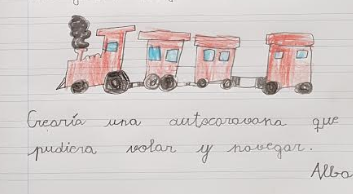 Crearía una autocaravana que
pudiera volar y navegar.
Alba